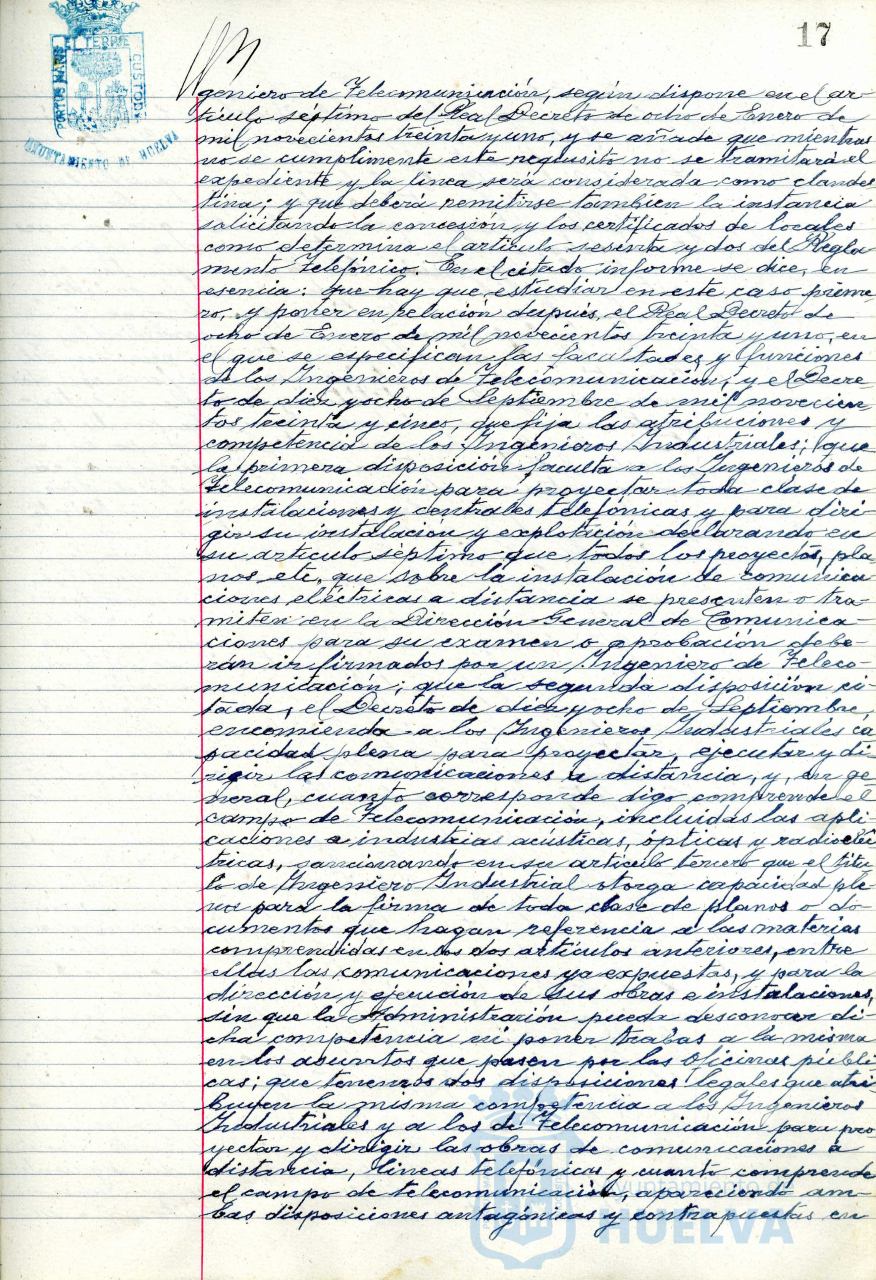 17
PORTUS MARIS ET TERRE CUSTODIA
AYUNTAMIENTO DE HUELVA
geniero de Telecomunicación, según dispone en el ar-
tículo séptimo del Real Decreto de ocho de Enero de
mil novecientos treinta y uno, y se añade que mientras
no se cumplimente este requisito no se tramitará el
expediente y la linea será considerada como clandes
tina; y que deberá remitirse tambien la instancia
solicitando la concesión y los certificados de locales
como determina el artículo sesenta y dos del Regla
mento Telefónico. En el citado informe se dice, en
esencia: que hay que estudiar en este caso prime
ro, y poner en relación después, el Real Decreto de
ocho de Enero de mil novecientos treinta y uno, en
el que se especifican las facultades y funciones
de los Ingenieros de Telecomunicación, y el Decre
to de diez y ocho de Septiembre de mil novecien
tos treinta y cinco, que fija las atribuciones y
competencia de los Ingenieros Industriales; que
la primera disposición faculta a los Ingenieros de
Telecomunicación para proyectar toda clase de
instalaciones y centrales telefónicas y para diri
gir su instalación y explotación declarando en
su artículo séptimo que todos los proyectos, pla
nos etc, que sobre la instalación de comunica
ciones eléctricas a distancia se presenten o tra-
miten en la Dirección General de Comunica-
ciones para su examen o aprobación debe-
rán ir firmados por un Ingeniero de Teleco-
municación; que la segunda disposición ci-
tada, el Decreto de diez y ocho de Septiembre,
encomienda a los Ingenieros Industriales ca
pacidad plena para proyectar, ejecutar y di-
rigir las comunicaciones a distancia, y, en ge-
neral, cuanto corresponde digo comprende el
campo de Telecomunicación, incluidas las apli-
caciones a industrias acústicas, ópticas y radioeléc
tricas, sancionando en su artículo tercero que el títu
lo de Ingeniero Industrial otorga capacidad ple-
na para la firma de toda clase de planos o do-
cumentos que hagan referencia a las materias
comprendidas en los dos artículos anteriores, entre
ellas las comunicaciones ya expuestas, y para la
dirección y ejecución de sus obras e instalaciones,
sin que la Administración pueda desconocer di-
cha competencia ni poner trabas a la misma
en los asuntos que pasen por las Oficinas públi
cas; que tenemos dos disposiciones legales que atri
buyen la misma competencia a los Ingenieros
Industriales y a los de Telecomunicación para pro
yectar y dirigir las obras de comunicaciones a
distancia, lineas telefónicas y cuanto comprende
el campo de telecomunicación, apareciendo am-
bas disposiciones antagónicas y contrapuestas en
Ayuntamiento de
HUELVA